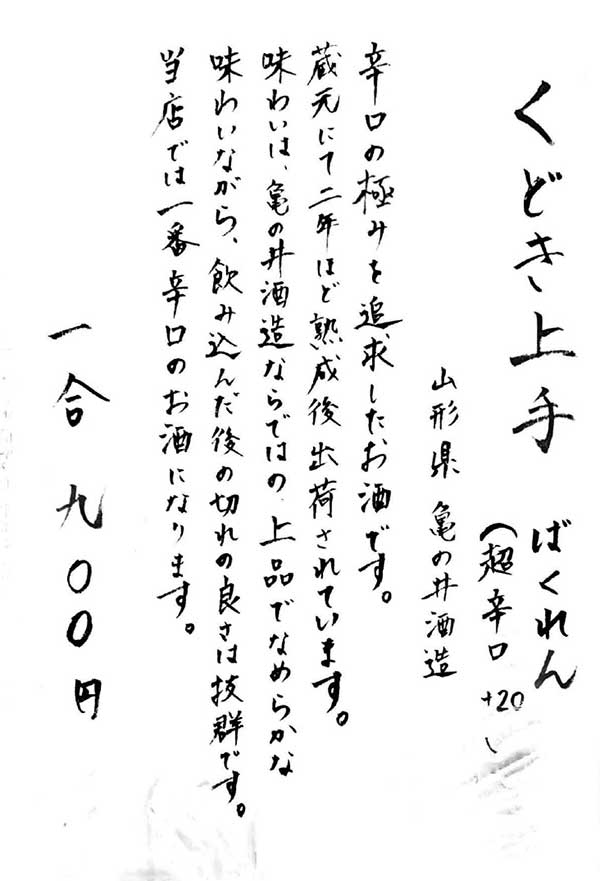 くどき上手 ばくれん
(超辛口 +20)
山形県 亀の井酒造
辛口の極みを追求したお酒です。
蔵元にて二年ほど熟成後出荷されています。
味わいは、亀の井酒造ならではの上品でなめらかな
味わいながら、飲み込んだ後の切れの良さは抜群です。
当店では一番辛口のお酒になります。
一合 九〇〇円